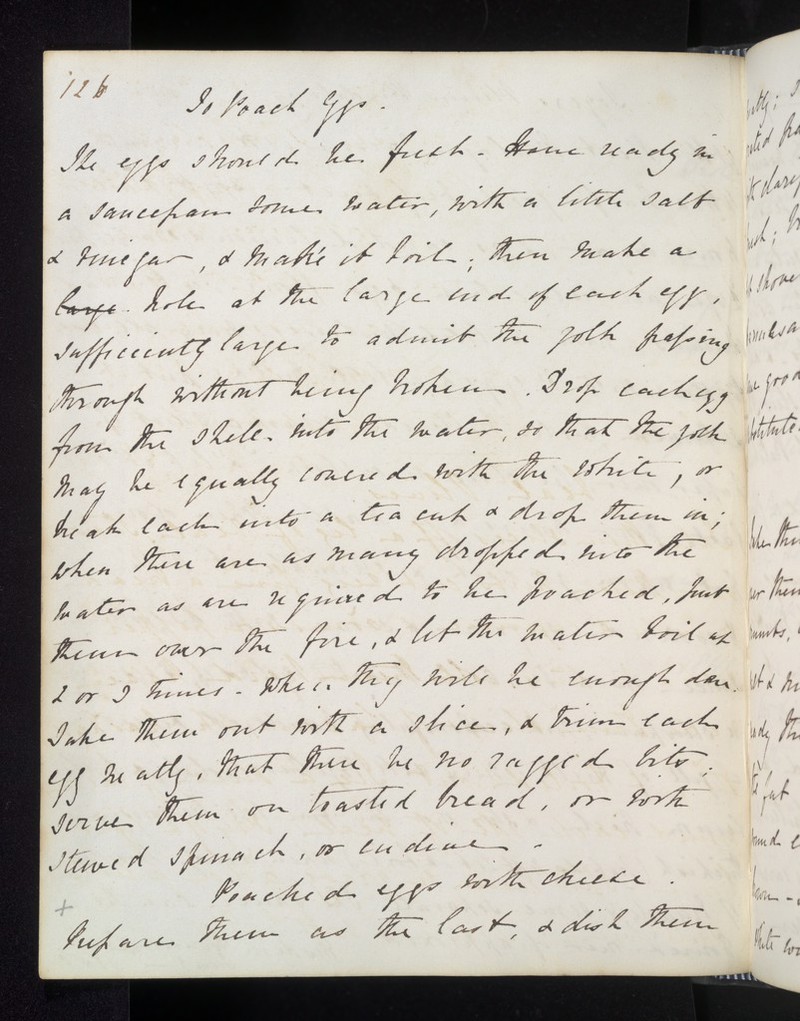 126
To Poach Eggs.
The eggs should be fresh. Have ready in
a saucepan some water, with a little salt
& vinegar, & make it boil; then make a
large hole at the large end of each egg,
sufficiently large to admit the yolk passing
through without being broken. Drop each egg
from the shell into the water, so that the yolk
may be equally covered with the white, or
break each into a tea cup & drop them in;
when there are as many dropped into the
water as are required to be poached, put
them over the fire, & let the water boil up
2 or 3 times - when they will be enough done.
Take them out with a slice, & trim each
egg neatly, that there be no ragged bits;
serve them on toasted bread, or with
stewed spinach, or endive.
Poached eggs with cheese.
+
Prepare them as the last, & dish them